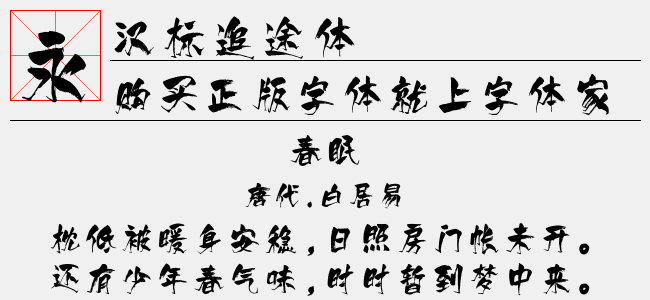 永
汉标追途体
购买正版字体就上字体家
春眠
唐代.白居易
枕低被暖身安稳,日照房门帐未开。
还有少年春气味,时时暂到梦中来。